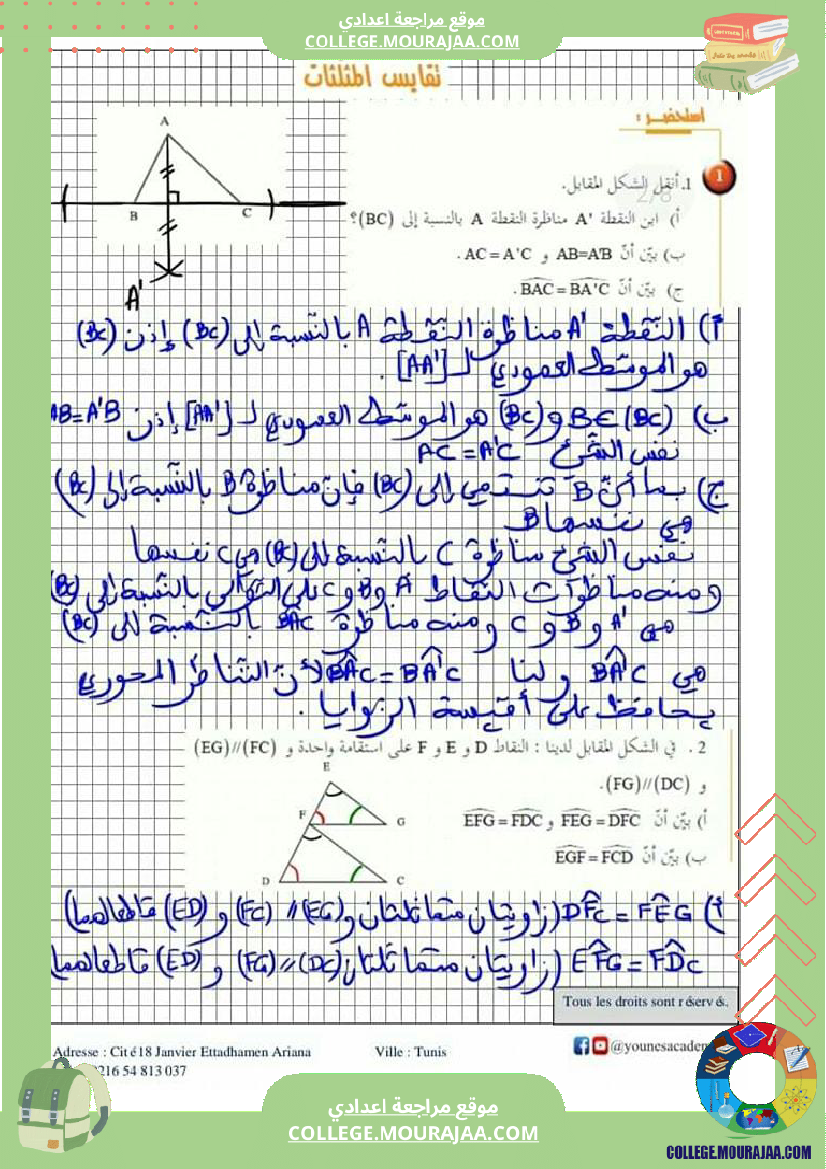 موقع مراجعة اعدادي
COLLEGE.MOURAJAA.COM
تقايس المثلثات
استحضر :
1
1. أنقل الشكل المقابل.
أ) ابن النقطة A' مناظرة النقطة A بالنسبة إلى (BC)؟
ب) بيّن أنّ AB=A'B و AC=A'C .
ج) بيّن أنّ BAC=BA'C.
A
B
C
A'
أ) النقطة A' مناظرة النقطة A بالنسبة إلى (BC) إذن (BC)
هو الموسّط العمودي لـ [AA'] .
ب) B∈(BC) و (BC) هو الموسّط العمودي لـ [AA'] إذن AB=A'B
نفس الشيء AC=A'C
ج) بما أنّ B تنتمي إلى (BC) فإن مناظرة B بالنّسبة إلى (BC)
هي نفسها B
نفس الشيء مناظرة C بالنسبة إلى (BC) هي C نفسها
ومنه مناظرات النقاط A و B و C على التوالي بالنّسبة إلى (BC)
هي A' و B و C ومنه مناظرة BÂC بالنّسبة إلى (BC)
هي BÂ'C ولنا BÂC = BÂ'C لأنّ التناظر المحوري
يحافظ على أقيسة الزوايا .
2 . في الشكل المقابل لدينا : النقاط D و E و F على استقامة واحدة و (EG)//(FC)
و (FG)//(DC).
أ) بيّن أنّ FEG=DFC و EFG=FDC
ب) بيّن أنّ EGF=FCD
E
F
G
D
C
أ) DF̂C = FÊG (زاويتان متماثلتان و (EG)//(FC) و (ED) قاطع لهما)
EF̂G = FD̂C (زاويتان متماثلتان (DC)//(FG) و (ED) قاطع لهما)
Tous les droits sont réservés.
Adresse : Cité 18 Janvier Ettadhamen Ariana
Ville : Tunis
@younesacadem
0216 54 813 037
موقع مراجعة اعدادي
COLLEGE.MOURAJAA.COM
COLLEGE.MOURAJAA.COM